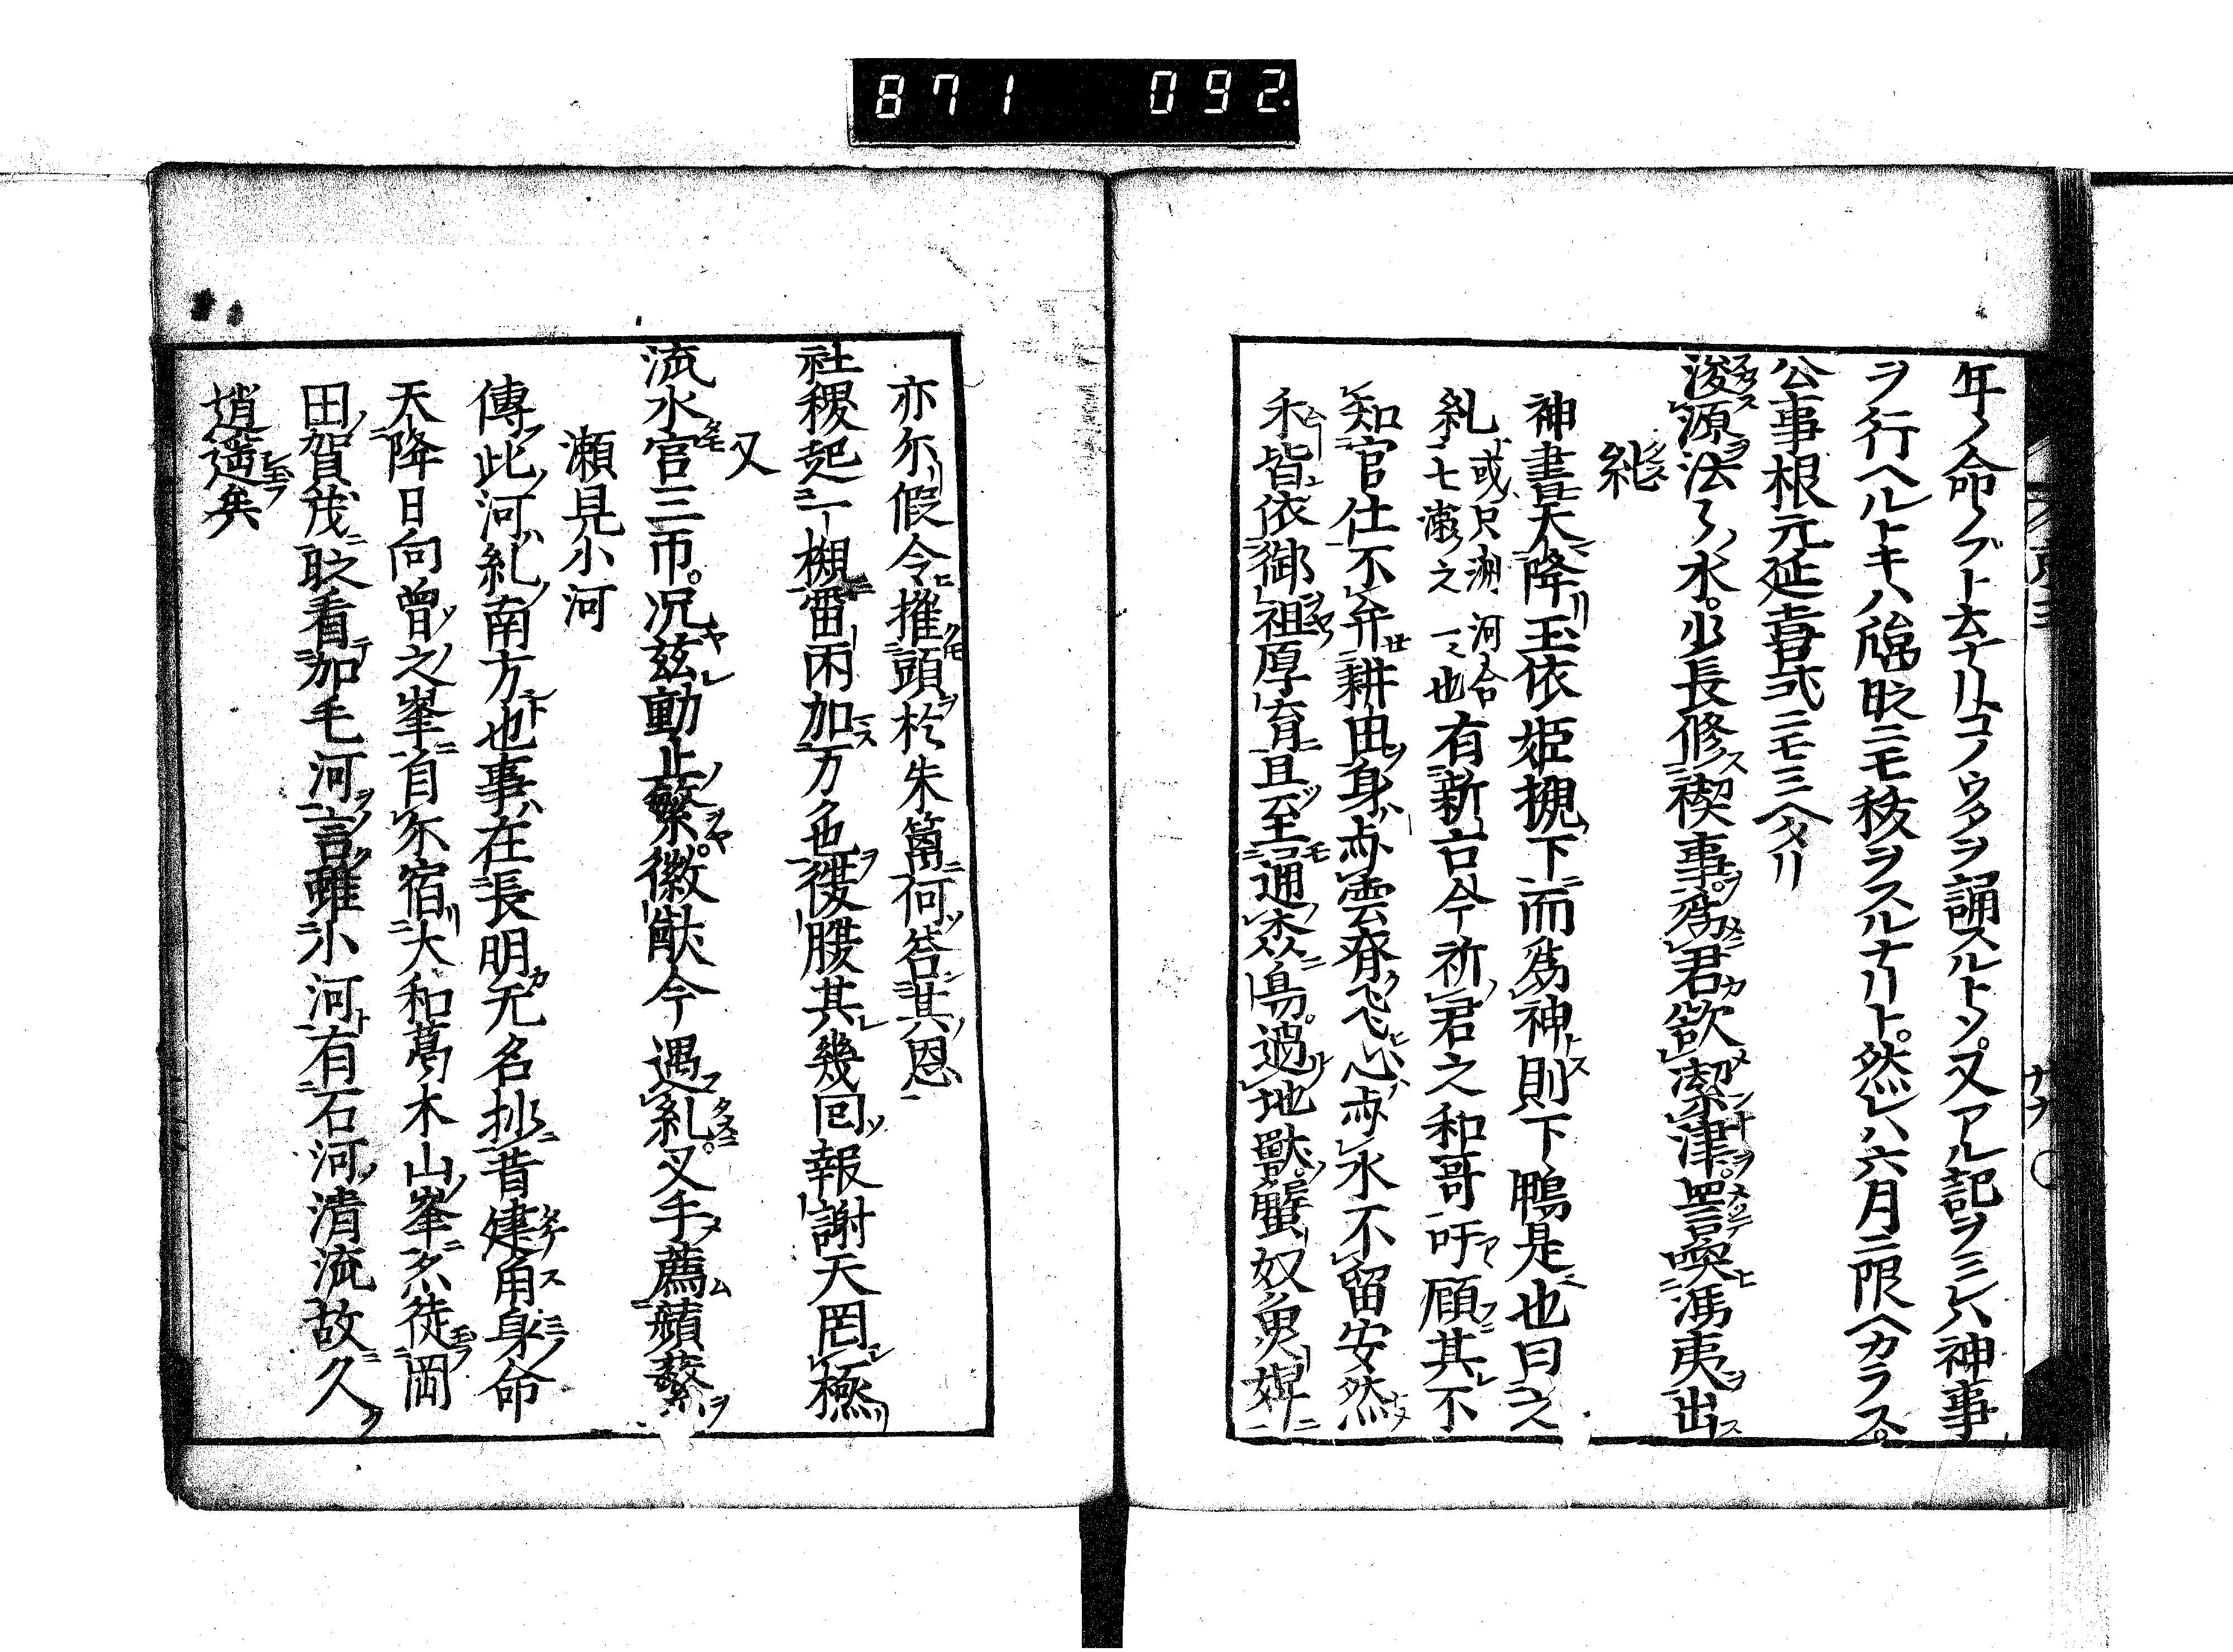 871 092.
年ノ命ノブト云ナリトコノウタヲ誦スルトソ。又アル記ヲミレハ神事
ヲ行ヘルトキハ臨時ニモ祓ヲスルナリト。然レハ六月ニ限ヘカラス。
公事根元延喜式ニモミヘタリ
浚源法水。少長修禊事。為君欲潔津。詈喫馮夷出
糺
神書天降玉依姫 下而為神則下鴨是也曰之
糺 或只洲 河合 七瀬之 一也 有新古今祈君之和哥吁顧其不
知官仕不弁耕由身亦雲脊飛心亦水不留安然
禾皆依御祖厚育且至通 鳥過地獣蟹奴魚婢
亦尓假令摧頭於朱 何答其恩
社稷起一櫬雷雨加万 腰其幾回報謝天罔極
又
流水官三帀。况茲動止繁。徽猷今遇糺。叉手薦蘋蘩
瀬見小河
傳此河糺南方也事在長明无名抄昔建角身命
天降日向曽之峯自尓宿大和葛木山峯 徒岡
田賀茂 看加毛河言雖小河有石河清流故久
逍遥矣